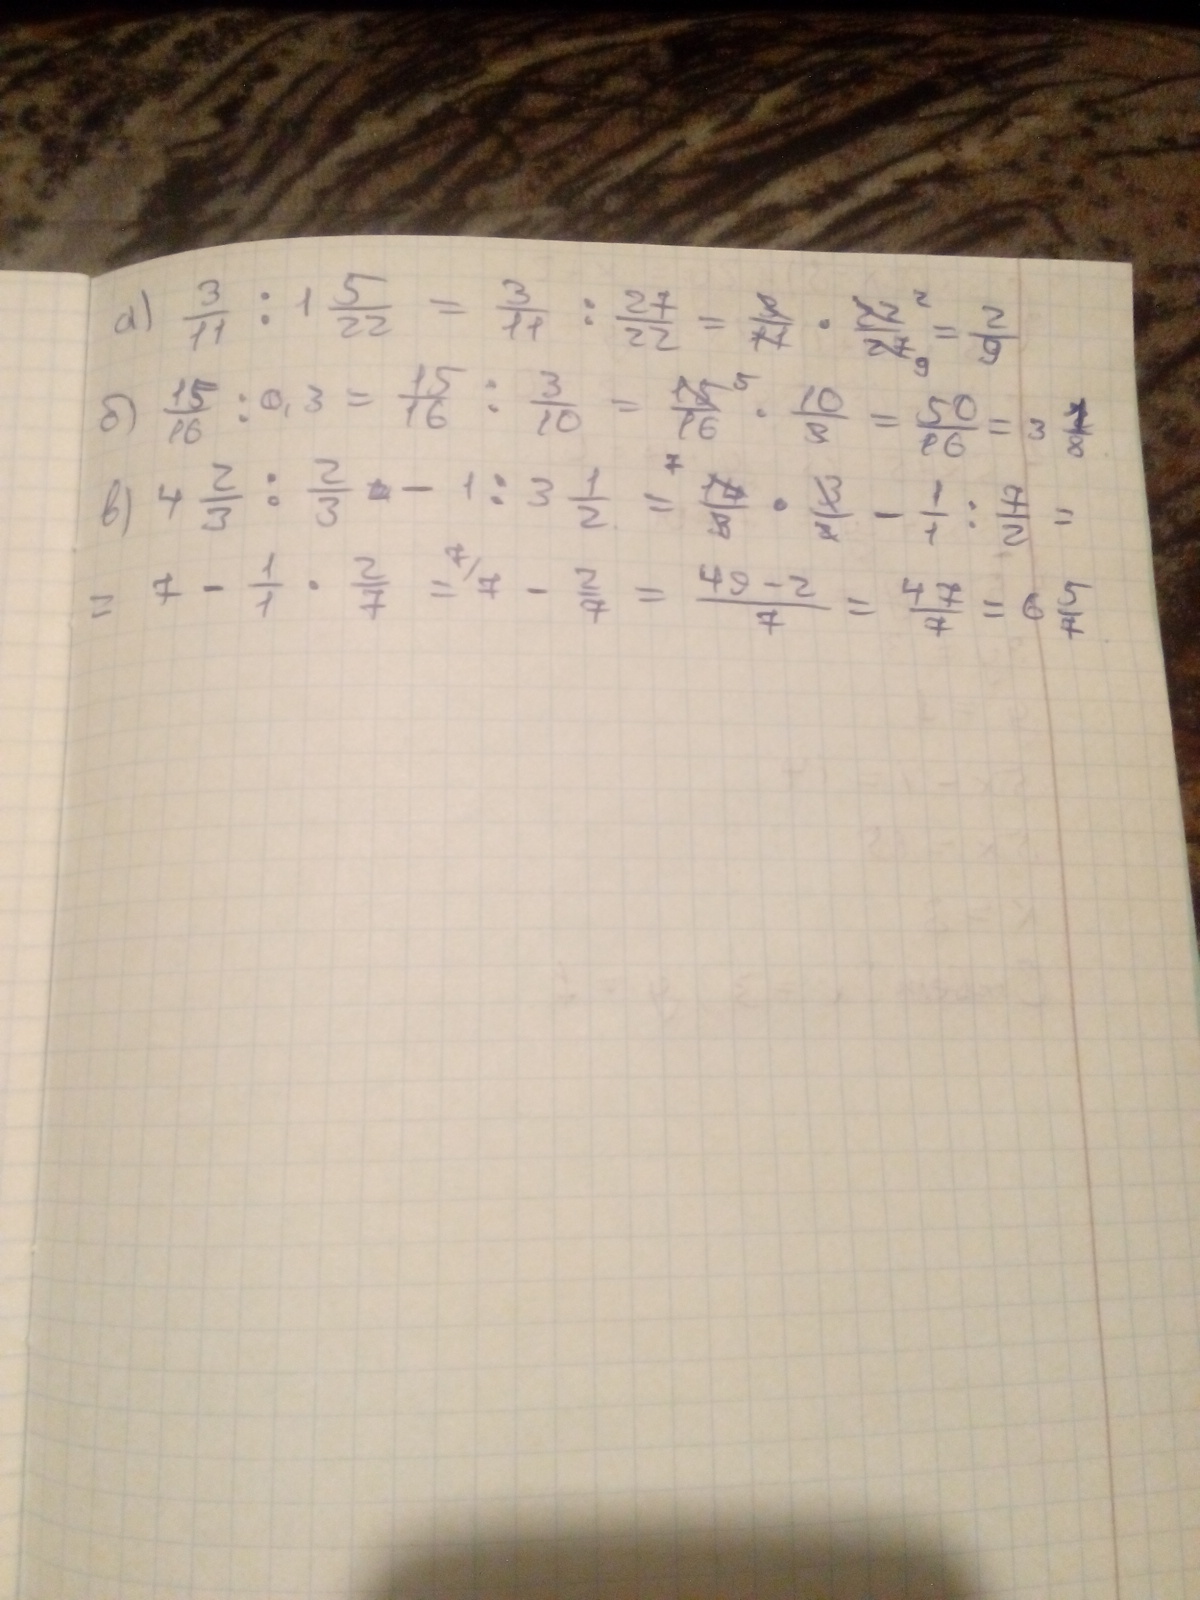 а) 3/11 : 1 5/22 = 3/11 : 27/22 = 3/11 · 22/27 2 9 = 2/9
б) 15/16 : 0,3 = 15/16 : 3/10 = 15/16 5 · 10/3 = 50/16 = 3 1/8
в) 4 2/3 : 2/3 - 1 : 3 1/2 = 7 14/3 · 3/2 - 1/1 : 7/2 =
= 7 - 1/1 · 2/7 = 7/ 7 - 2/7 = 49-2/7 = 47/7 = 6 5/7